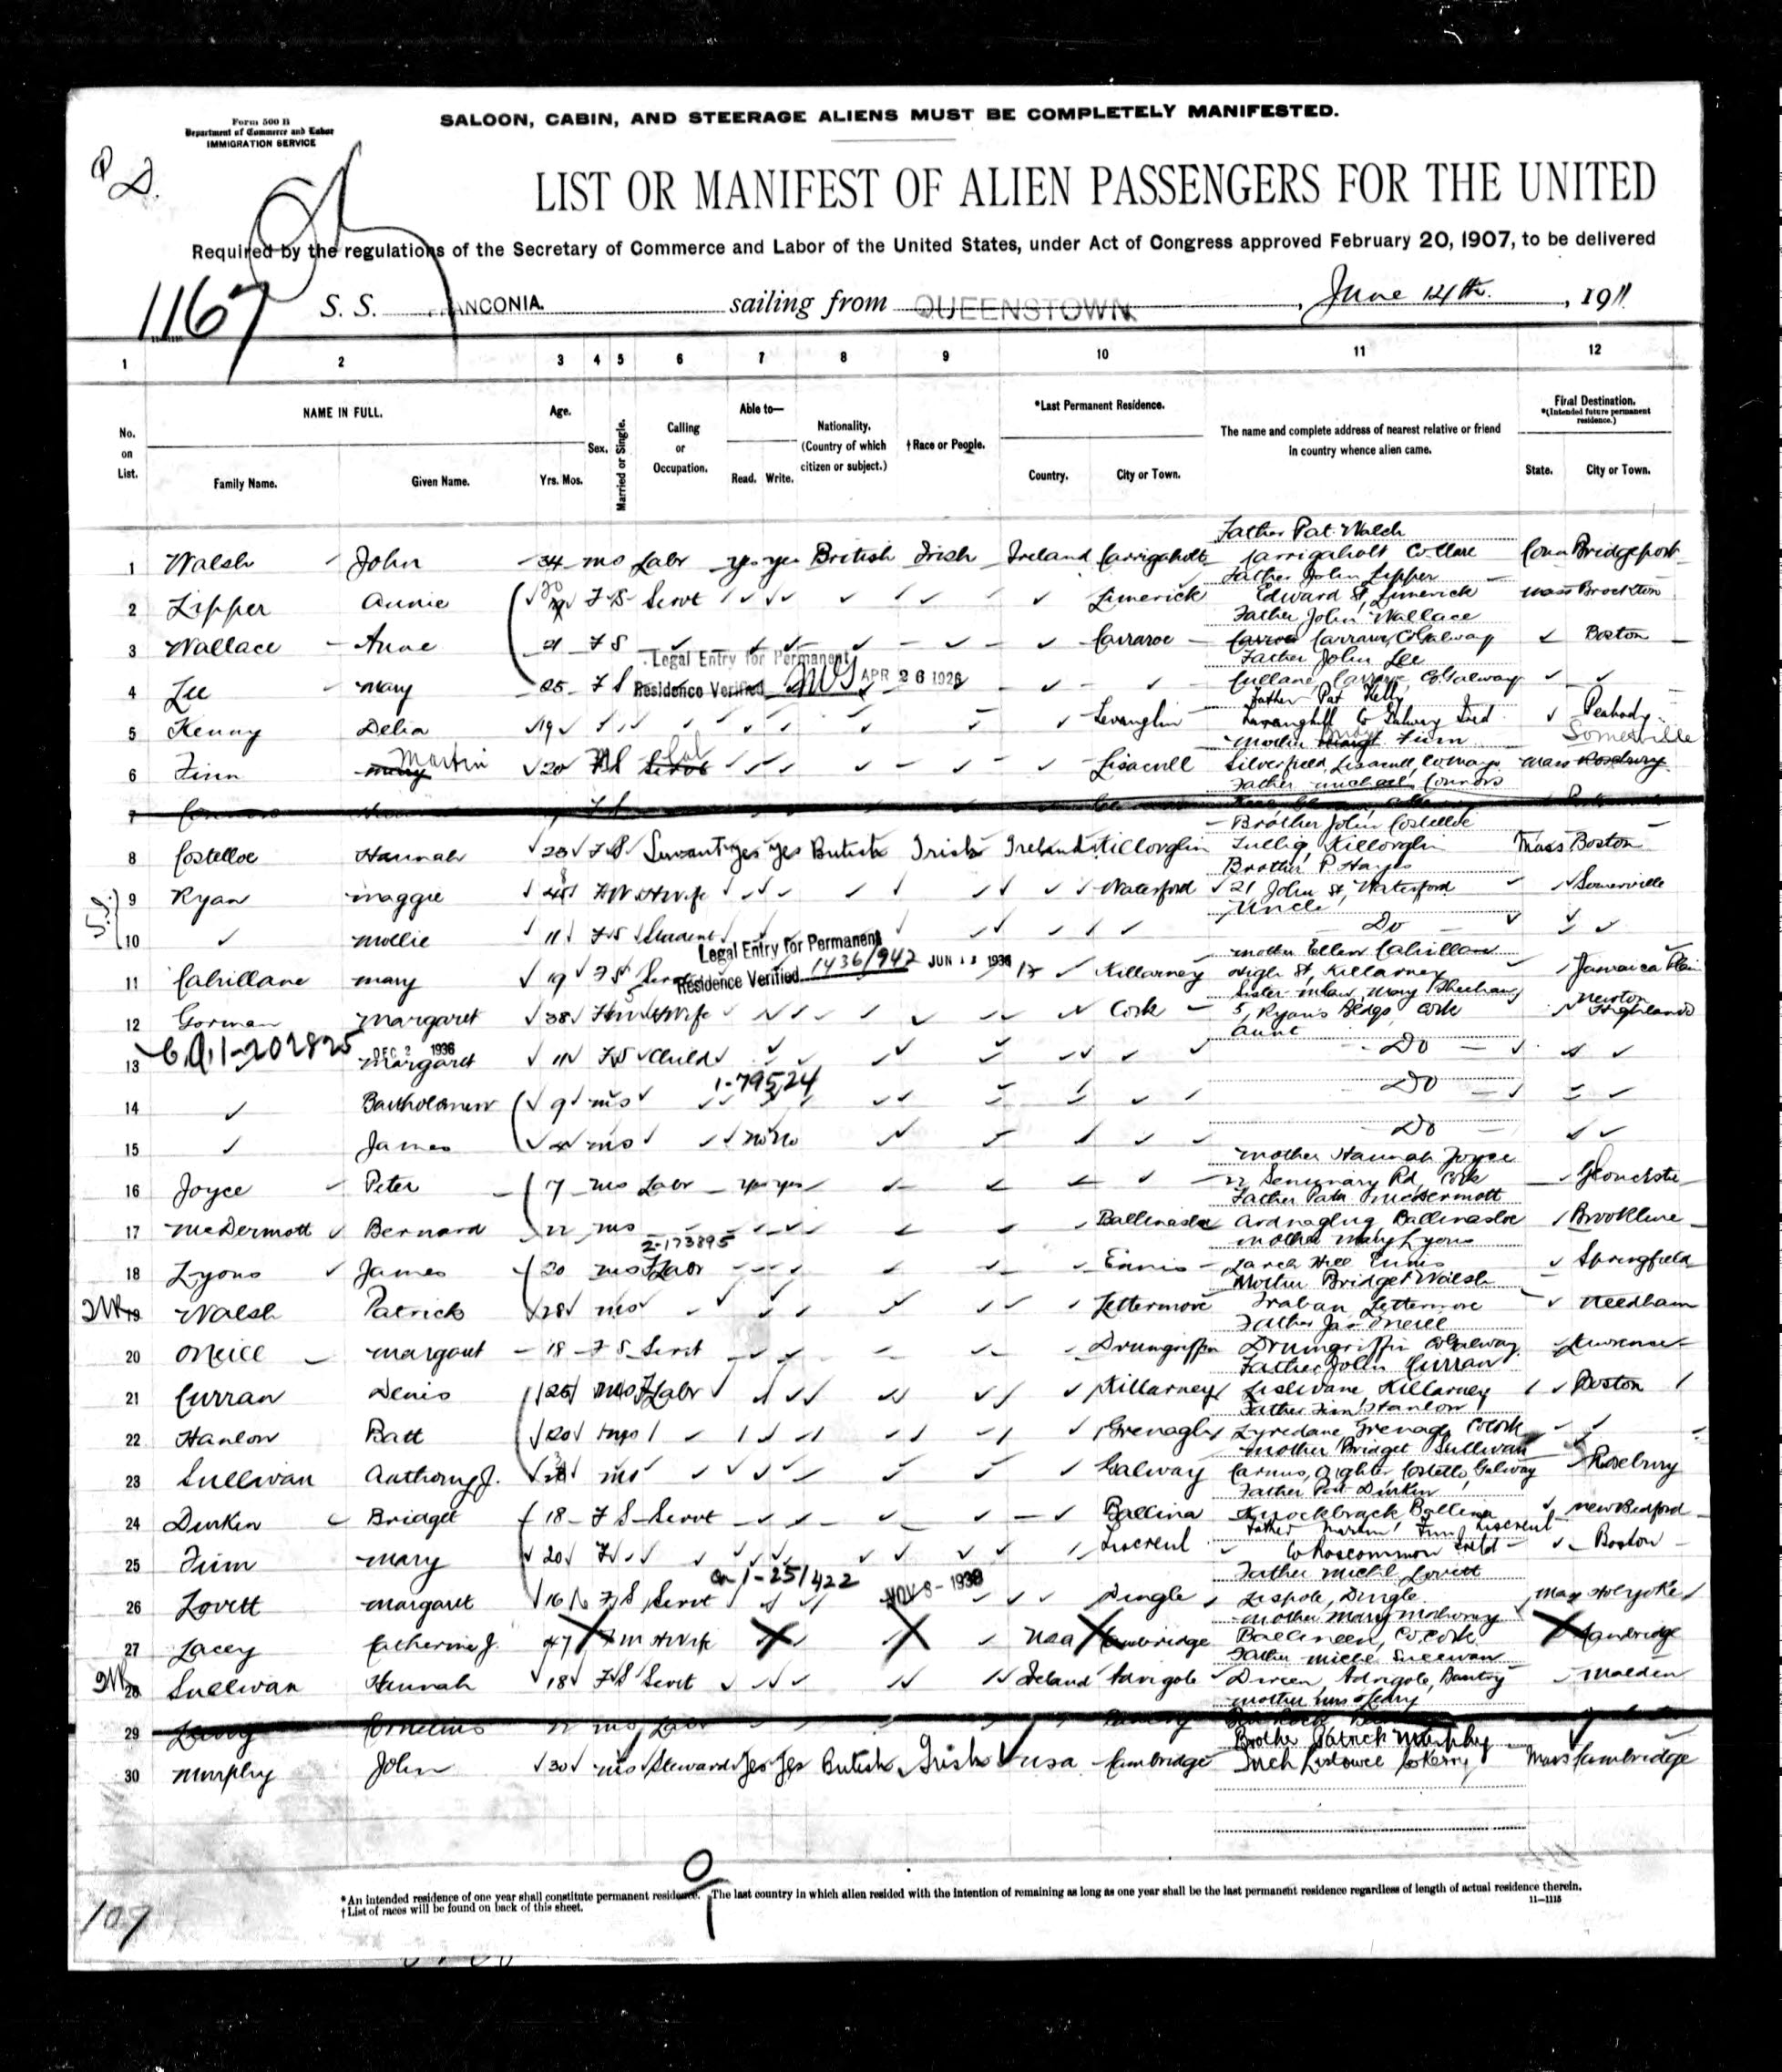 Form 500 B
Department of Commerce and Labor
IMMIGRATION SERVICE
SALOON, CABIN, AND STEERAGE ALIENS MUST BE COMPLETELY MANIFESTED.
LIST OR MANIFEST OF ALIEN PASSENGERS FOR THE UNITED
Required by the regulations of the Secretary of Commerce and Labor of the United States, under Act of Congress approved February 20, 1907, to be delivered
1167 S. S. ANCONIA sailing from QUEENSTOWN, June 14th, 1911
1 2 3 4 5 6 7 8 9 10 11 12
No. on List. NAME IN FULL. Family Name. Given Name. Age. Yrs. Mos. Sex. Married or Single. Calling or Occupation. Able to— Read. Write. Nationality. (Country of which citizen or subject.) †Race or People. *Last Permanent Residence. Country. City or Town. The name and complete address of nearest relative or friend in country whence alien came. Final Destination. *(Intended future permanent residence.) State. City or Town.
Father Pat Walsh
1 Walsh John 34 m s Labr yes yes British Irish Ireland Carrigaholt Carrigaholt Co Clare Conn Bridgeport
Father John Lipper
2 Lipper Annie F S Servt Limerick Edward St, Limerick Mass Brockton
Father John Wallace
3 Wallace Anne 21 F S Carraroe Carraroe, Co Galway Boston
Legal Entry for Permanent
Residence Verified APR 26 1926
Father John Lee
4 Lee Mary 25 F S Carraroe, Co Galway
Father Pat Kelly
5 Kenny Delia 19 Levanglin Co Galway Ireld Peabody
Mother Finn Somerville
6 Finn Mary Martin 20 M S Servt Lab Lisacull Silverfield, Lisacull, Co Mayo Mass Roxbury
Father Michael Connors
7
Brother John Costelloe
8 Costelloe Hannah 23 F S Servant yes yes British Irish Ireland Killorglin Tullig, Killorglin Mass Boston
Brother P Hayes
9 Ryan Maggie F W H Wife Waterford 21 John St, Waterford Somerville
Uncle
10 Mollie 11 F S Student Do
Legal Entry for Permanent
Residence Verified 1436/942 JUN 13 1936
Mother Ellen Cahillane
11 Cahillane Mary 19 F S Killarney High St, Killarney Jamaica Plain
Sister in law, Mary Sheehan
12 Gorman Margaret 38 F H Wife Cork 5, Ryan's Bldgs, Cork Newton Highlands
Aunt
C.A. 1-202825 DEC 2 1936
13 Margaret 11 F S Child Do
1-79524
14 Bartholomew 9 m s Do
15 James 4 m s no no Do
Mother Hannah Joyce
16 Joyce Peter 17 m s Labr yes yes Seminary Rd, Cork Gloucester
Father Patk McDermott
17 McDermott Bernard 22 m s Ballinasloe Ardnaglug, Ballinasloe Brookline
2-173895
Mother Mary Lyons
18 Lyons James 20 m s F Labr Ennis Larch Hill Ennis Springfield
Mother Bridget Walsh
19 Walsh Patrick 28 m s Lettermore Traban, Lettermore Needham
Father Jas Oneill
20 ONeill Margaret 18 F S Servt Drumgriffin Drumgriffin Co Galway Lawrence
Father John Curran
21 Curran Denis 25 m s F Labr Killarney Lislivane, Killarney Boston
Father Tim Hanlon
22 Hanlon Batt 20 m s Grenagh Lyredane, Grenagh, Co Cork
Mother Bridget Sullivan
23 Sullivan Anthony J. m s Galway Carnus, Aighter, Costello, Galway Roxbury
Father Pat Durkin
24 Durkin Bridget 18 F S Servt Ballina Knockbrack, Ballina New Bedford
Father Martin Finn, Liscreul
25 Finn Mary 20 F Liscreul Co Roscommon Ireld Boston
CA 1-251422 NOV 8-1938
Father Michl Lovett
26 Lovett Margaret 16 F S Servt Dingle Lispole, Dingle Mass Holyoke
Mother Mary Mahoney
27 Lacey Catherine J. 47 F M H Wife USA Cambridge Ballineen, Co. Cork Cambridge
Father Michl Sullivan
28 Sullivan Hannah 18 F S Servt Ireland Adrigole Direen, Adrigole, Bantry Malden
29 Cornelius 22 m s Labr
Brother Patrick Murphy
30 Murphy John 30 m s Steward yes yes British Irish USA Cambridge Inch Listowel Co Kerry Mass Cambridge
*An intended residence of one year shall constitute permanent residence. The last country in which alien resided with the intention of remaining as long as one year shall be the last permanent residence regardless of length of actual residence therein.
†List of races will be found on back of this sheet.
11—1115
109